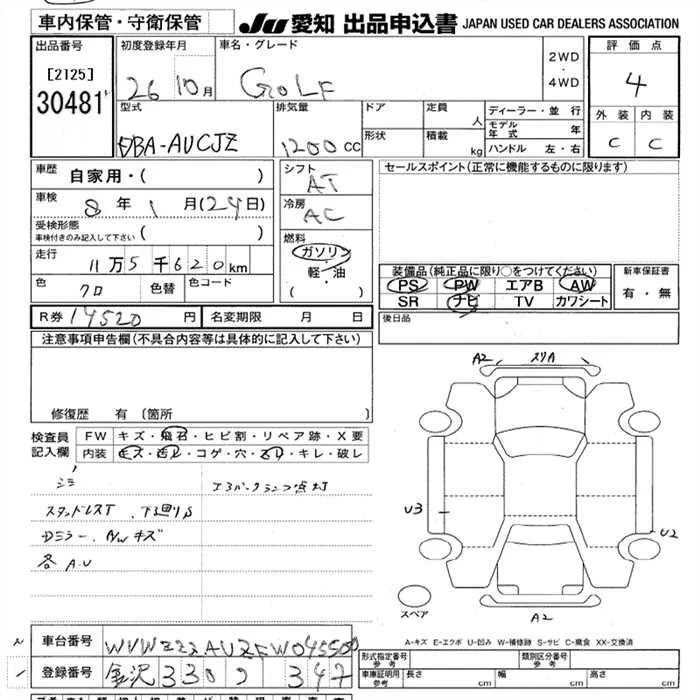 車内保管・守衛保管 JU 愛知 出品申込書 JAPAN USED CAR DEALERS ASSOCIATION
出品番号 [2125] 30481
初度登録年月 26 10月
車名・グレード GOLF 2WD ・ 4WD
評価点 4
外装 内装
C C
型式 DBA-AUCJZ
排気量 1200 CC
ドア 定員 人
形状 積載 kg
ディーラー・並行
モデル年式 年
ハンドル 左・右
車歴 自家用・( )
車検 8年1月(24日)
受検形態 車検付きのみ記入して下さい ( )
走行 11万5千620km
色 クロ 色替 色コード
シフト AT
冷房 AC
燃料 ガソリン 軽・油 ( )
セールスポイント(正常に機能するものに限ります)
装備品(純正品に限り〇をつけてください) 新車保証書
PS PW エアB AW 有・無
SR ナビ TV カワシート
R券 14520円 名変期限 月 日
後日品
注意事項申告欄(不具合内容等は具体的に記入して下さい)
修復歴 有 〔箇所
検査員記入欄 FW キズ・飛石・ヒビ割・リペア跡・X要
内装 キズ・汚れ・コゲ・穴・スレ・キレ・破レ
エアバックランプ点灯
スタッドレスT 、下廻りS
Dミラー、AWキズ
各A.U
A2 スリA
U3
U2
A2
スペア
A-キズ E-エクボ U-凹み W-補修跡 S-サビ C-腐食 XX-交換済
車台番号 WVWZZZAUZFW045550
登録番号 金沢 330 347
形式指定番号 参考 類別区分番号 参考
車庫証明用 参考 長さ cm 幅 cm 高さ cm